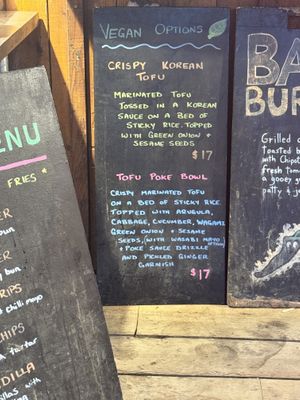 VEGAN OPTIONS
CRISPY KOREAN
TOFU
MARINATED TOFU
TOSSED IN A KOREAN
SAUCE ON A BED OF
STICKY RICE. TOPPED
WITH GREEN ONION +
SESAME SEEDS
$17
TOFU POKE BOWL
CRISPY MARINATED TOFU
ON A BED OF STICKY RICE
TOPPED WITH ARUGULA,
CABBAGE, CUCUMBER, WAKAME
GREEN ONION + SESAME
SEEDS, (WITH WASABI MAYO
+ POKE SAUCE DRIZZLE
AND PICKLED GINGER
GARNISH
$17
ENU
FRIES *
ER
bun
ER
bun
RIPS
chilli mayo
CHIPS
tartar
DILLA
llas with
BA
BUR
Grilled
Toasted b
with Chipot
fresh tom
a gooey
patty & je